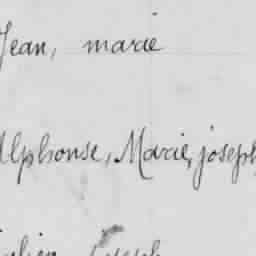 Jean, marie
Alphonse, Marie, joseph
Joseph